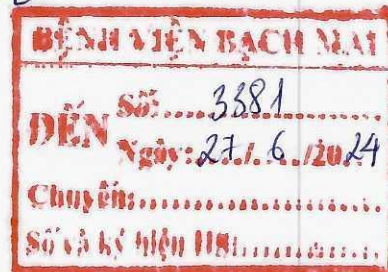 BỆNH VIỆN BẠCH MAI
Số:.....3381..........
ĐẾN
Ngày: 27./. 6. /2024
Chuyển:..........................
Số và ký hiệu HS:................